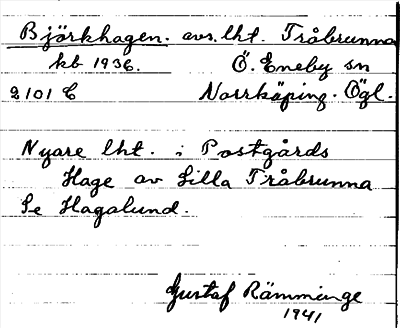 Björkhagen. avs. lht. Tråbrunna
kb 1936. Ö. Eneby sn
2101 C Norrköping. Ögl.
Nyare lht. i Postgårds
Hage av Lilla Tråbrunna
Se Hagalund.
Gustaf Rämminge
1941